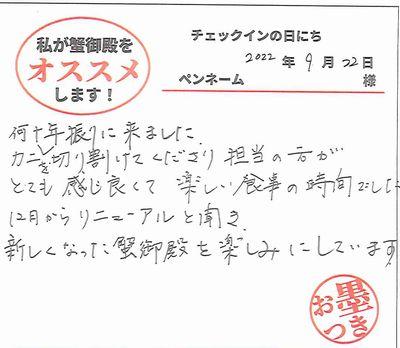 私が蟹御殿を
オススメ
します！
チェックインの日にち
2022 年 9 月 22 日
ペンネーム 様
何十年振りに来ました
カニを切り割けてくださり 担当の方が
とても 感じ良くて 楽しい食事の時間でした
12月からリニューアルと聞き
新しくなった蟹御殿を楽しみにしています
お墨
つき